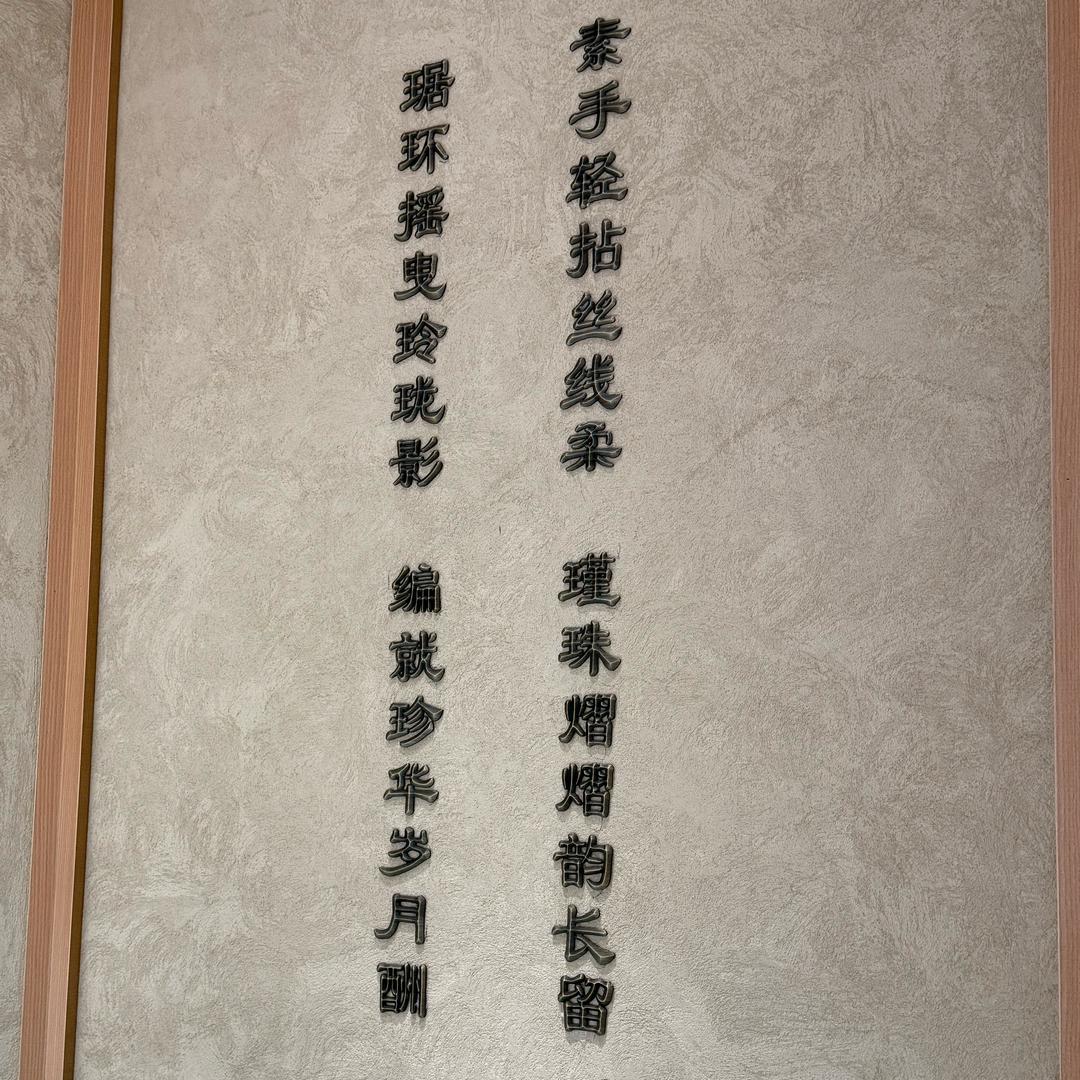 素手轻拈丝线柔
瑾珠熠熠韵长留
琚环摇曳玲珑影
编就珍华岁月酬